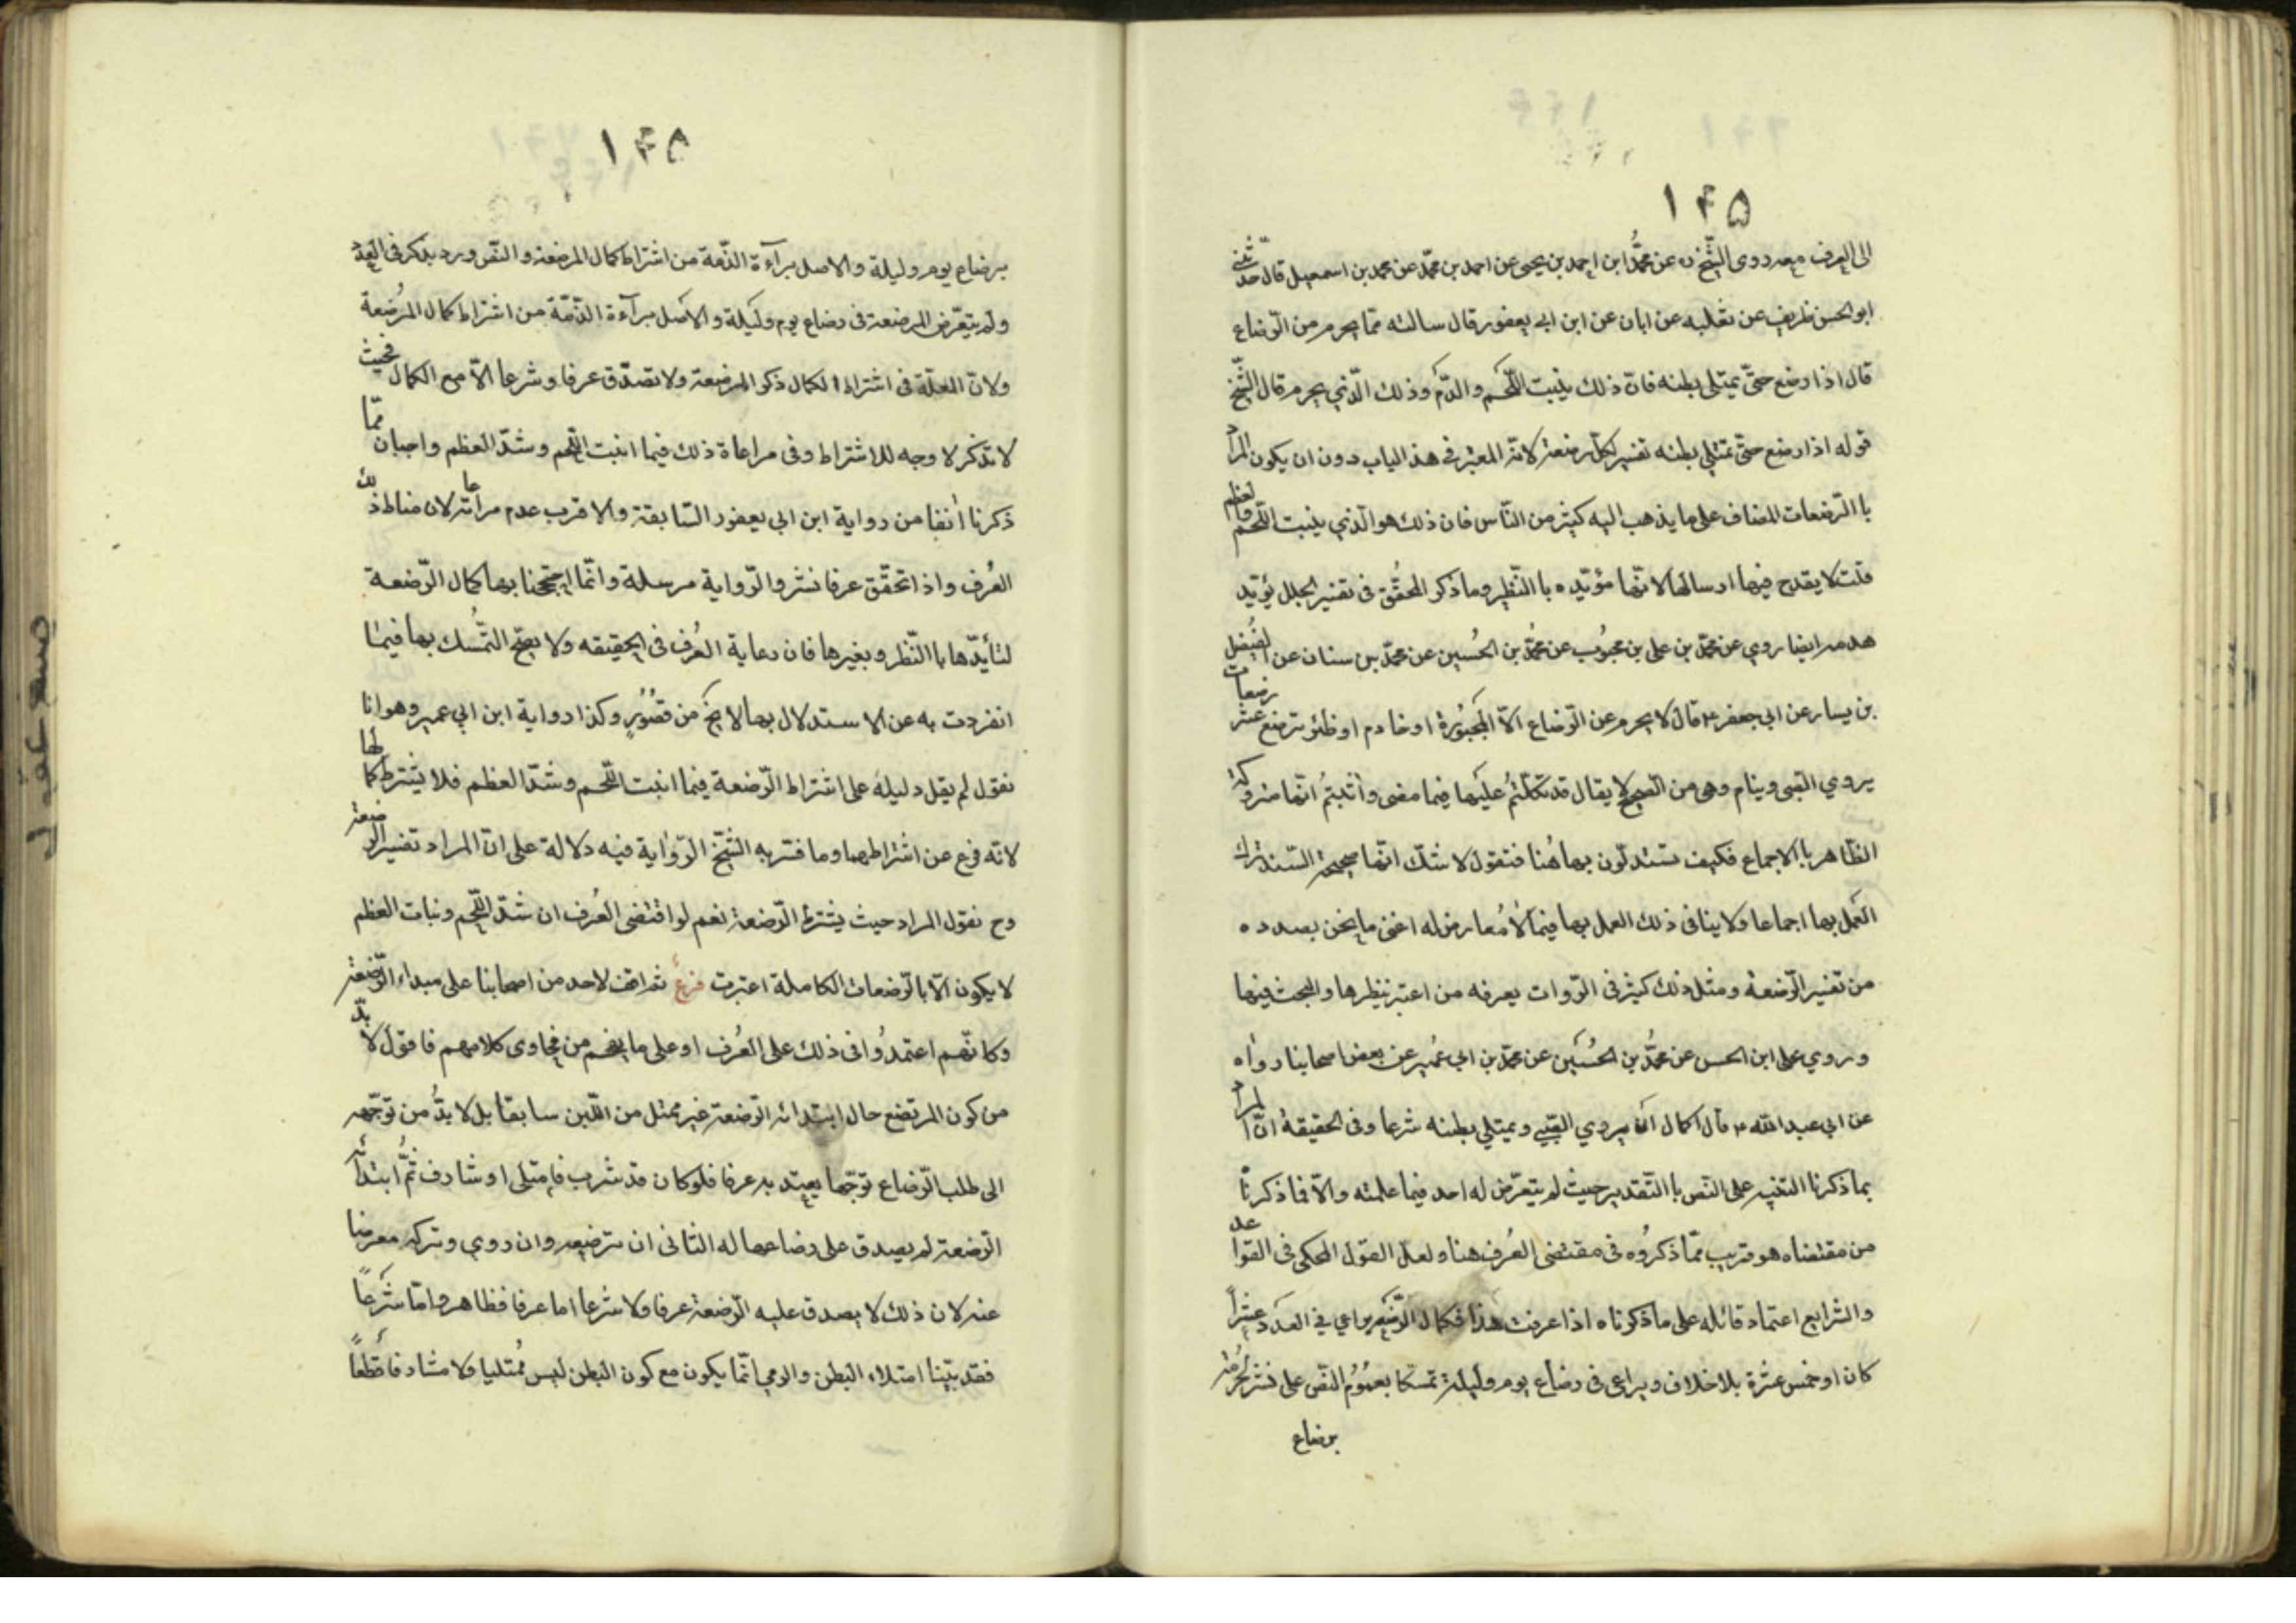 ١٤٥
الى العرف معه روى الشيخ ره عن محمد ابن احمد بن يحيى عن احمد بن محمد عن محمد بن اسمعيل قال حدثنى
ابو الحسن ظريف عن ثعلبه عن ابان عن ابن ابي يعفور قال سالته عما يحرم من الرضاع
قال اذا رضع حتى يمتلى بطنه فان ذلك ينبت اللحم والدم وذلك الذي يحرم قال الشيخ
قوله اذا رضع حتى يمتلي بطنه تفسير لكل رضعة لانه المعتبر في هذا الباب دون ان يكون المراد
با الرضعات المضاف على ما يذهب اليه كثير من الناس فان ذلك هو الذي ينبت اللحم والعظم
قلت لا يقدح فيها ارسالها لانها مؤيده با النظر وما ذكر المحقق فى تفسير يؤيد
هذه ايضا روي عن محمد بن على بن محبوب عن محمد بن الحسين عن محمد بن سنان عن الفضيل
بن يسار عن ابي جعفر ع قال لا يحرم من الرضاع الا المجبورة او خادم او ظئر ترضع عشر رضعات
يروي الصبى وينام وهى من الصحيح لا يقال قد تكلمتم عليها فيما مضى واثبتم انها متروكة
الظاهر با الاجماع فكيف تستدلون بها هنا فنقول لا شك انها صحيحة السند ترك
العمل بها اجماعا ولا ينافى ذلك العمل بها فيما لا معارض له اعنى ما نحن بصدده
من تفسير الرضعة ومثل ذلك كثير فى الروات يعرفه من اعتبر بنظرها والبحث فيها
وروي على ابن الحسن عن محمد بن الحسين عن محمد بن ابي عمير عن بعض اصحابنا رواه
عن ابي عبد الله ع قال يروي الصبي ويمتلي بطنه شرعا وفى الحقيقة ان المراد
بما ذكرنا التنبيه على النص با التقدير حيث لم يتعرض له احد فيما علمته والا فما ذكرنا
من مقتضاه هو قريب مما ذكروه فى مقتضى العرف هنا ولعل القول المحكى فى القواعد
والشرايع اعتماد قائله على ما ذكرناه اذا عرفت هذا فكمال يراعي في العدد عشرا
كان او خمس عشرة بلا خلاف ويراعى فى رضاع يوم وليلة تمسكا بعموم النص على نشر الحرمة
برضاع
١٤٥
برضاع يوم وليلة والاصل برآءة الذمة من اشتراط كمال المرضعة والنص ورد بذكر فى العدد
ولم يتعرض المرضعة فى رضاع يوم وليلة والاصل برآءة الذمة من اشتراط كمال المرضعة
ولان العلة فى اشتراط الكمال ذكر المرضعة ولا تصدق عرفا وشرعا الا مع الكمال فحيث
لا تذكر لا وجه للاشتراط وفى مراعاة ذلك فيما انبت اللحم وشد العظم واجبان مما
ذكرنا أنفا من رواية ابن ابي يعفور السابقة والاقرب عدم مراعاته لان مناط ذلك
العرف واذا تحقق عرفا نشر والرواية مرسلة وانما احتججنا بها كمال الرضعة
لتأيدها با النظر وبغيرها فان رعاية العرف فى الحقيقه ولا يصح التمسك بها فيما
انفردت به عن الاستدلال بها لا يخ من قصور وكذا رواية ابن ابي عمير وهو انا
نقول لم يقل دليله على اشتراط الرضعة فيما انبت اللحم وشد العظم فلا يشترط كمالها
لانه فرع عن اشتراطها وما فسر به الشيخ الرواية فيه دلالة على ان المراد تفسير الرضعة
وح نقول المراد حيث يشترط الرضعة نعم لو اقتضى العرف ان شد اللحم ونبات العظم
لا يكون الا بالرضعات الكاملة اعتبرت فرع ثم لم اقف لاحد من اصحابنا على مبداء الرضعة
وكانهم اعتمدوا فى ذلك على العرف او على ما يفهم من فحاوى كلامهم فاقول لا بد
من كون المرتضع حال ابتدائه الرضعة غير ممتل من اللبن سابقا بل لا بد من توجهه
الى طلب الرضاع توجها يعتد به عرفا فلو كان قد شرب فامتلى او شارف ثم ابتدأ
الرضعة لم يصدق على رضاعها له الثانى ان ترضعه وان روي وتركه معرضا
عنه لان ذلك لا يصدق عليه الرضعة عرفا ولا شرعا اما عرفا فظاهر واما شرعا
فقد بينا امتلاء البطن والرمي انما يكون مع كون البطن ليس ممتليا ولا مشارفا قطعا